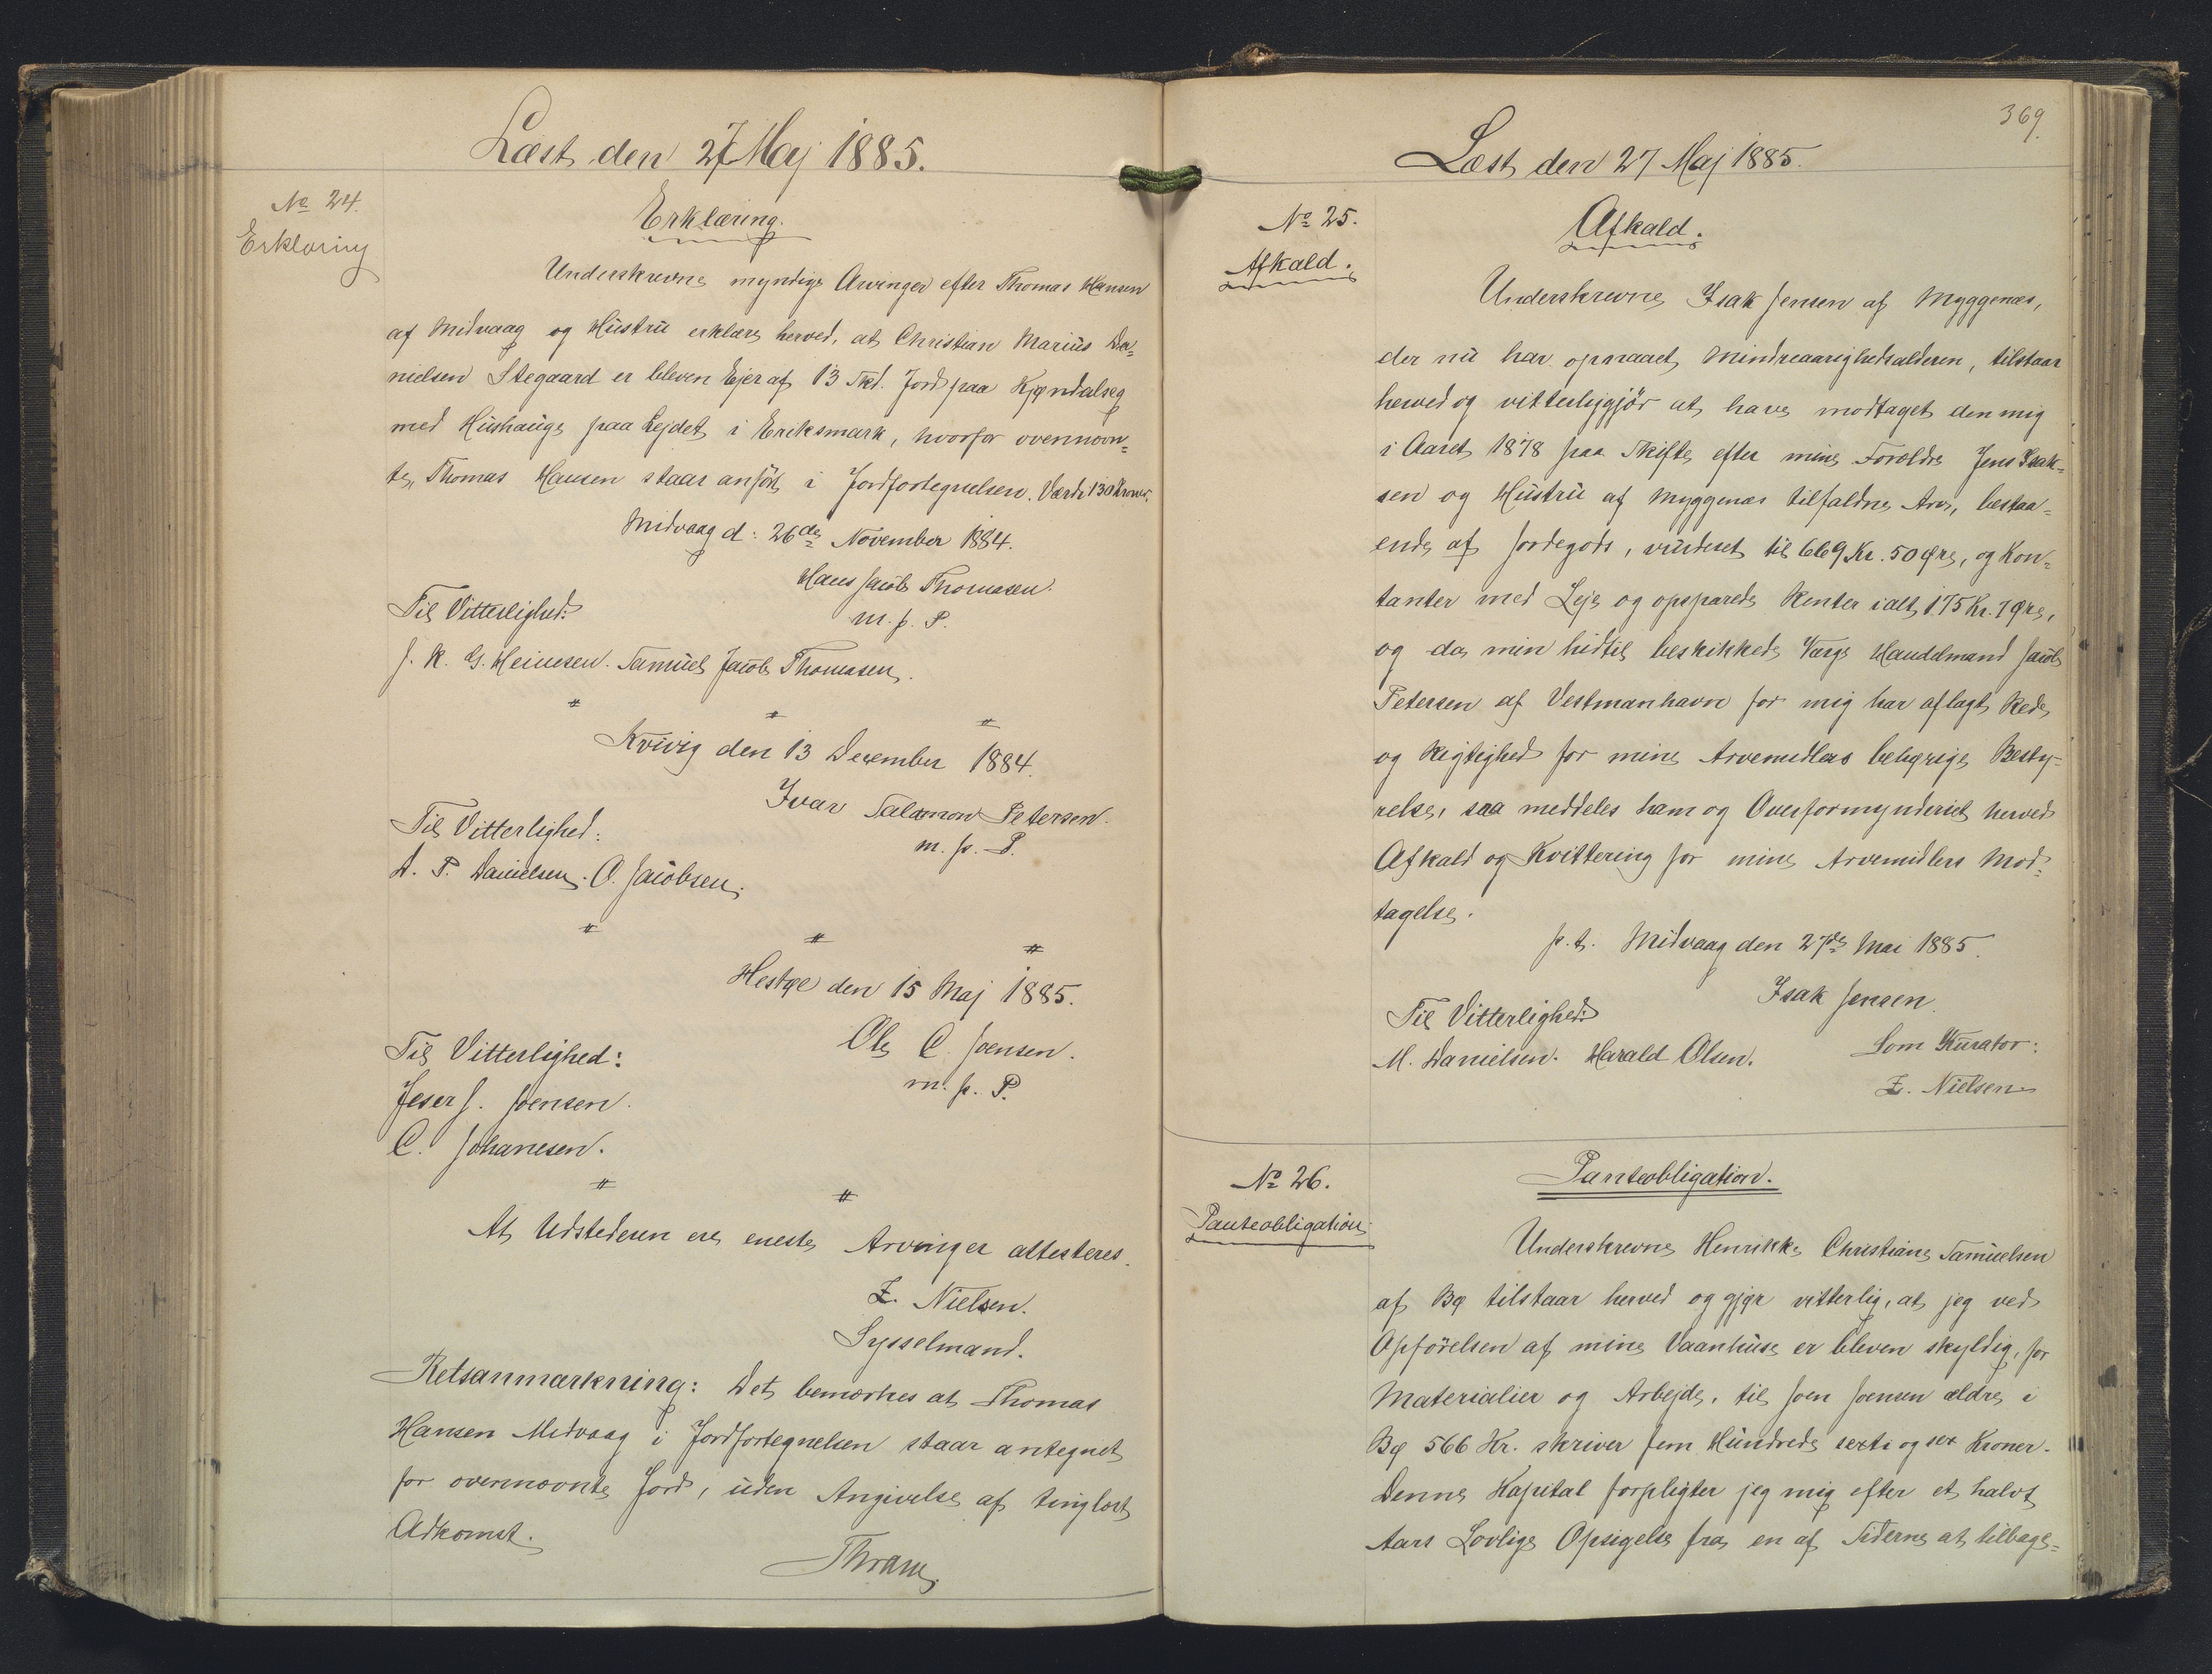 Læst den 27 Maj 1885.
No 24.
Erklæring
Erklæring.
Underskrevne myndige Arvinger efter Thomas Hansen
af Midvaag og Hustru erklære herved, at Christian Marius Da-
nielsen Stegaard er bleven Ejer af 13 Skd. Jord paa Kjøndalseg
med Hushauge paa Lejdet i Eriksmark, hvorfor ovennævn-
te Thomas Hansen staar anført i Jordfortegnelsen. Værdi 130 Kroner.
Midvaag d: 26de November 1884.
Hans Jacob Thomasen.
m. p. P.
Til Vitterlighed:
J. K. G. Heinesen. Samuel Jacob Thomasen.
Kvivig den 13 December 1884.
Ivar Salamon Petersen.
m. p. P.
Til Vitterlighed:
D. P. Danielsen. O. Jacobsen.
Hestøe den 15 Maj 1885.
Ole C. Joensen.
m. p. P.
Til Vitterlighed:
J. Joensen.
C. Johanesen.
At Udstederen ere eneste Arvinger attesteres.
Z. Nielsen.
Sysselmand.
Retsanmærkning: Det bemærkes at Thomas
Hansen Midvaag i Jordfortegnelsen staar antegnet
for ovennævnte Jord, uden Angivelse af tinglæst
Adkomst.
369.
Læst den 27 Maj 1885.
No 25.
Afkald.
Afkald.
Underskrevne Isak Jensen af Myggenæs,
der nu har opnaaet Mindreaarighedsalderen, tilstaar
herved og vitterliggjör at have modtaget den mig
i Aaret 1878 paa Skifte efter mine Forældre Jens Isak-
sen og Hustru af Myggenæs tilfaldne Arv, bestaa-
ende af Jordegods, vurderet til 669 Kr. 50 Øre, og Kon-
tanter med Leje og opsparede Renter ialt 175 Kr. 7 Øre,
og da min hidtil beskikkede Værge Handelmand Jacob
Petersen af Vestmanhavn for mig har aflagt Rede
og Rigtighed for mine Arvemidlers behørige Besty-
relse, saa meddeles ham og Overformynderiet herved
Afkald og Kvittering for mine Arvemidlers Mod-
tagelse.
p.t. Midvaag den 27de Mai 1885.
Isak Jensen.
Til Vitterlighed:
M. Danielsen. Harald Olsen.
Som Kurator:
Z. Nielsen
No 26.
Panteobligation
Panteobligation.
Underskrevne Henrikke Christiane Samuelsen
af Bø tilstaar herved og gjør vitterlig, at jeg ved
Opförelsen af mine Vaanhuse er bleven skyldig, for
Materialier og Arbejde, til Joen Joensen ældre i
Bø 566 Kr. skriver fem Hundrede sexti og sex Kroner.
Denne Kapital forpligter jeg mig efter et halvt
Aars Lovlige Opsigelse fra en af Siderne at tilbage-